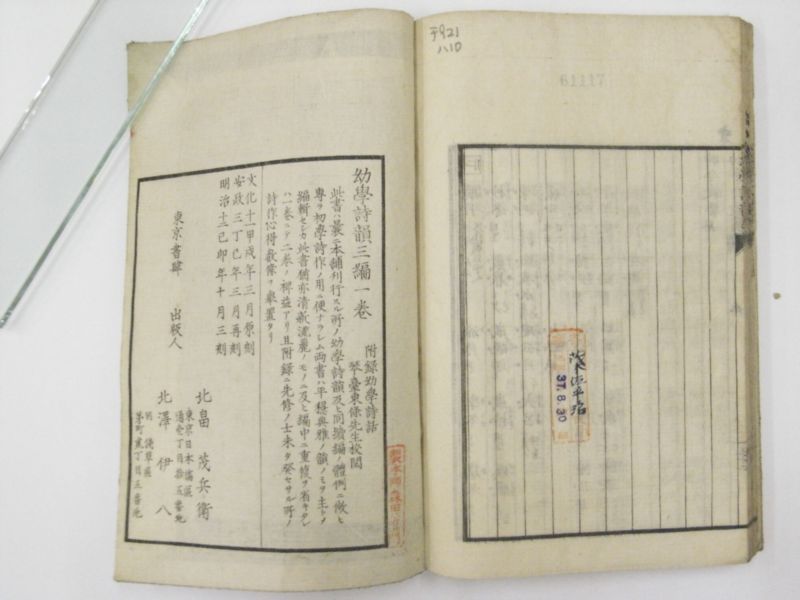 〒921
ハ10
61117
37.8.30
幼學詩韻三編一卷
附録幼學詩話
琴臺東條先生校閲
此書ハ曩ニ本舗刊行スル所ノ幼學詩韻及ヒ同續編ノ體例ニ倣ヒ
專ラ初學詩作ノ用ニ便ナラシム両書ハ平穏典雅ノ韻ノミヲ主トメ
編輯セシカ此書猶亦清新流麗ノモノニ及ヒ編中ニ重複ヲ省キタレ
ハ一巻ニテ二巻ノ裨益アリ且附録ニ先修ノ士未タ發セサル所ノ
詩作心得数條ヲ舉置タリ
文化十一甲戌年三月原刻
安政三丁巳年三月再刻
明治十二己卯年十月三刻
東京書肆 出版人
北畠茂兵衛
東京日本橋區
通壱丁目拾五番地
北澤伊八
同 淺草區
茅町貳丁目五番地